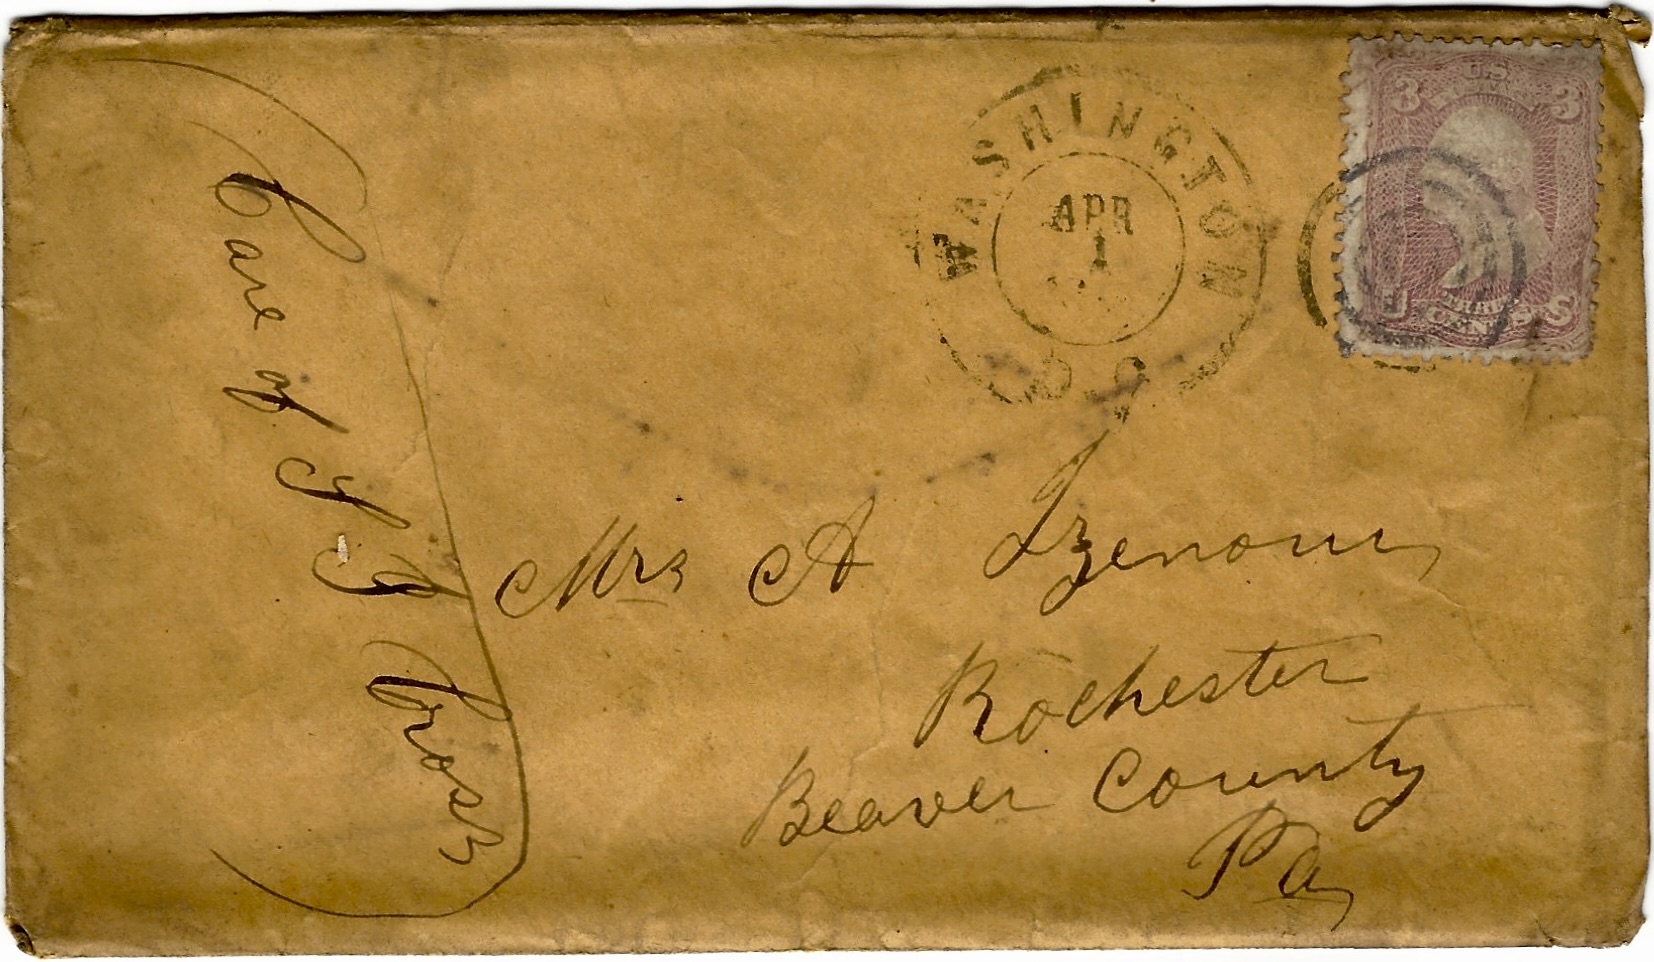 WASHINGTON
APR
1
D.C.
U.S.
3 3
U S
THREE
CENTS
Mrs A Izenour
Rochester
Beaver County
Pa,
Care of J J Cross